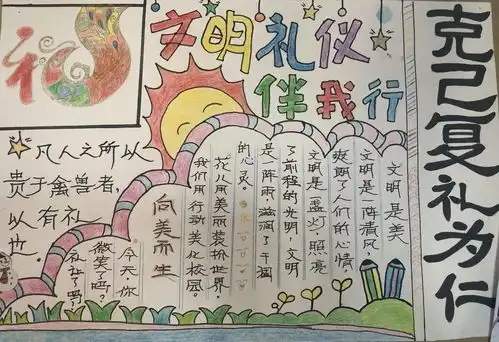 礼
文明礼仪
伴我行
克己复礼为仁
凡人之所以
贵于禽兽者,
以有礼
也。
文明是美
文明是一阵清风,
爽朗了人们的心情
文明是一盏灯,照亮
了前程的光明,文明
是一阵雨,滋润了干涸
的心灵。
花儿用美丽装扮世界,
我们用行动美化校园。
向美而生
今天,你
微笑了吗?
礼让了吗?